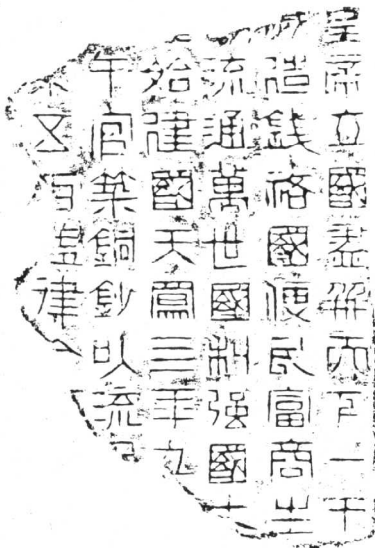 皇帝立國盡并天下一千
造錢國便民富商
流通萬世國利強國十
始建國天鳳三年九
午官築銅鈔以流
五律